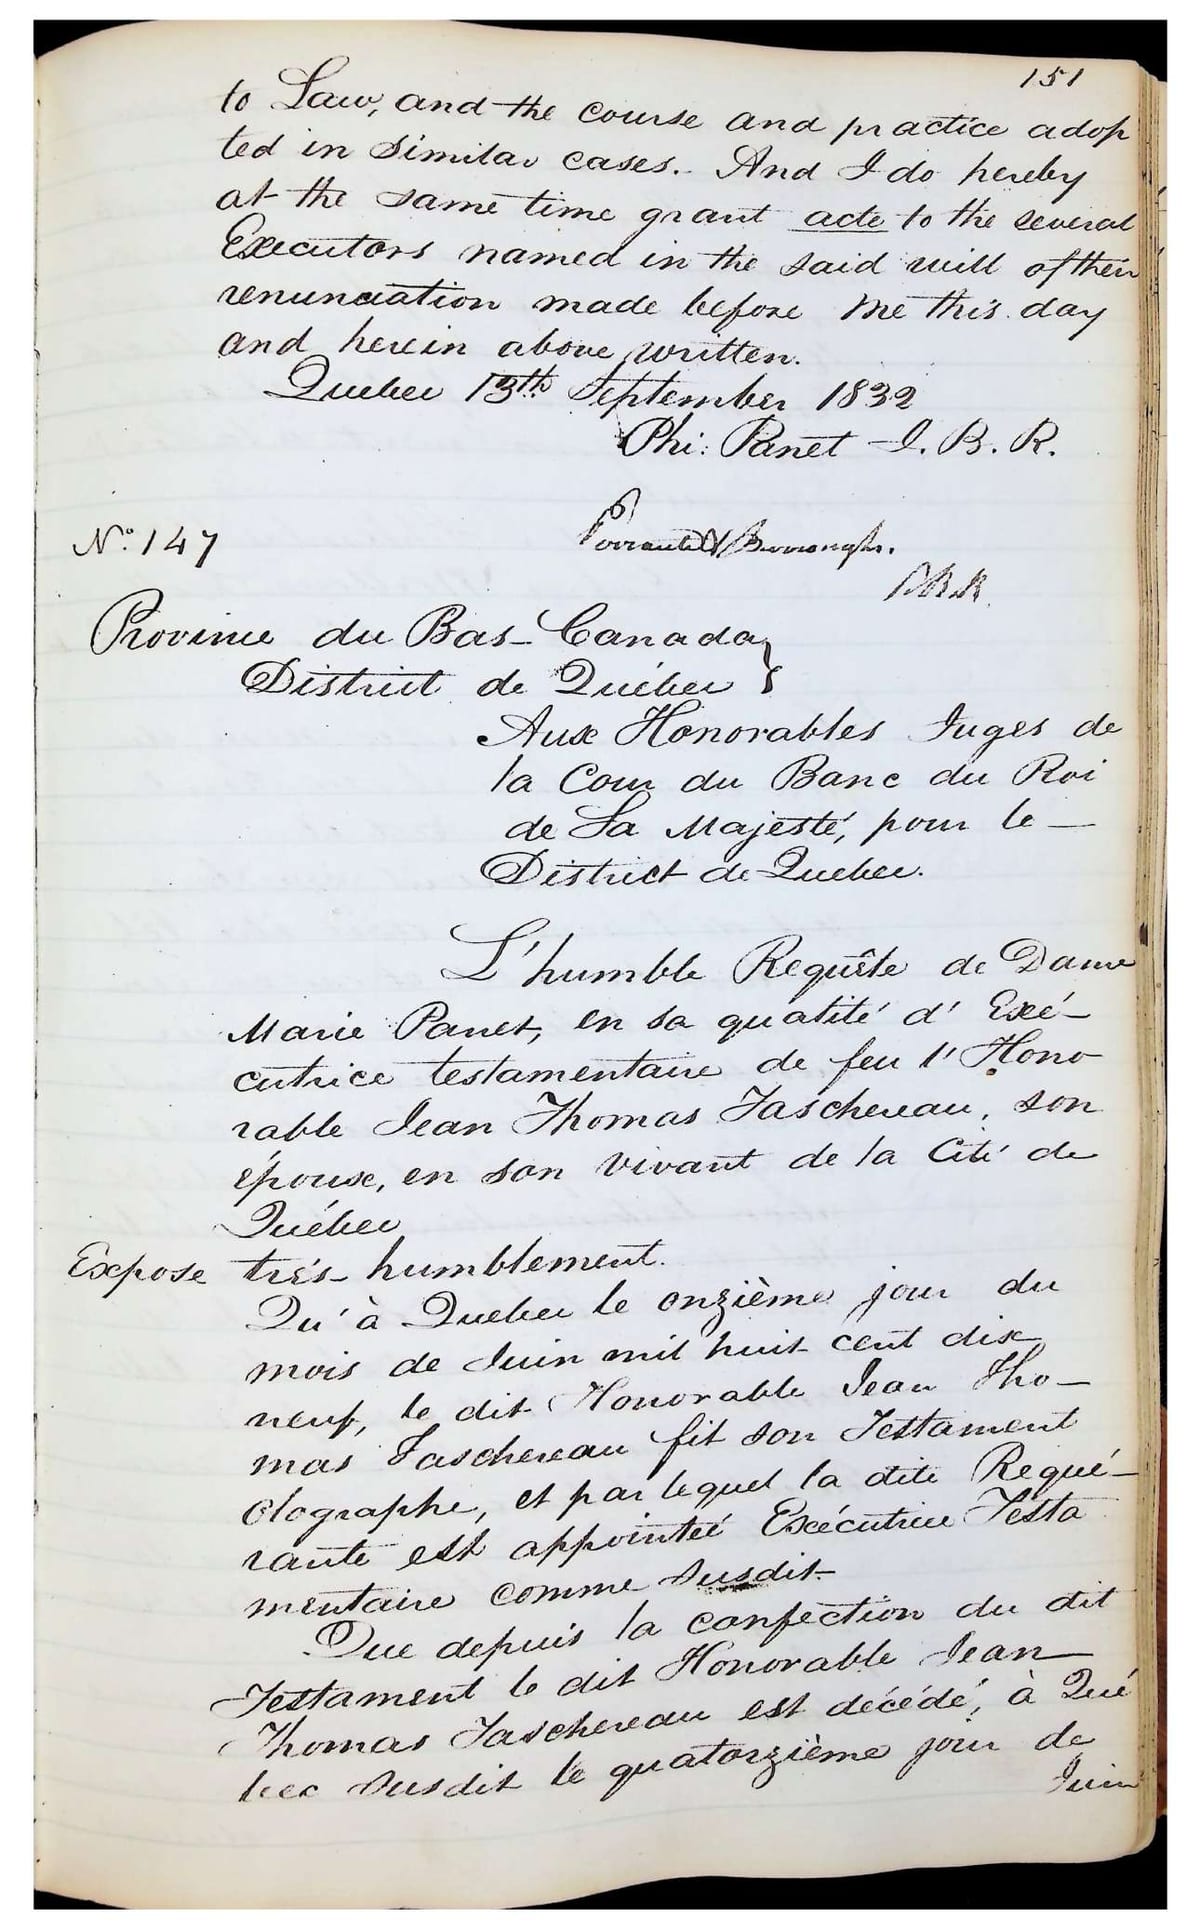 151
to Law, and the course and practice adop
ted in similar cases.- And I do hereby
at the same time grant acte to the several
Executors named in the said will of their
renunciation made before me this day
and herein above written.
Quebec 13th September 1832
Phi: Panet J. B. R.
No. 147
Perrault & Burroughs.
P.B.R.
Province du Bas-Canada
District de Québec
Aux Honorables Juges de
la Cour du Banc du Roi
de Sa Majesté, pour le —
District de Quebec.
L'humble Requête de Dame
Marie Panet, en sa qualité d'Exé-
cutrice testamentaire de feu l'Hono
rable Jean Thomas Taschereau, son
épouse, en son vivant de la Cité de
Québec
Expose très-humblement.
Qu'à Quebec le onzième jour du
mois de Juin mil huit cent dix
neuf, le dit Honorable Jean Tho-
mas Taschereau fit son Testament
olographe, et par lequel la dite Requé-
rante est appointée Exécutrice Testa
mentaire comme susdit-
Que depuis la confection du dit
Testament le dit Honorable Jean
Thomas Taschereau est décédé, à Qué
bec susdit le quatorzième jour de
Juin